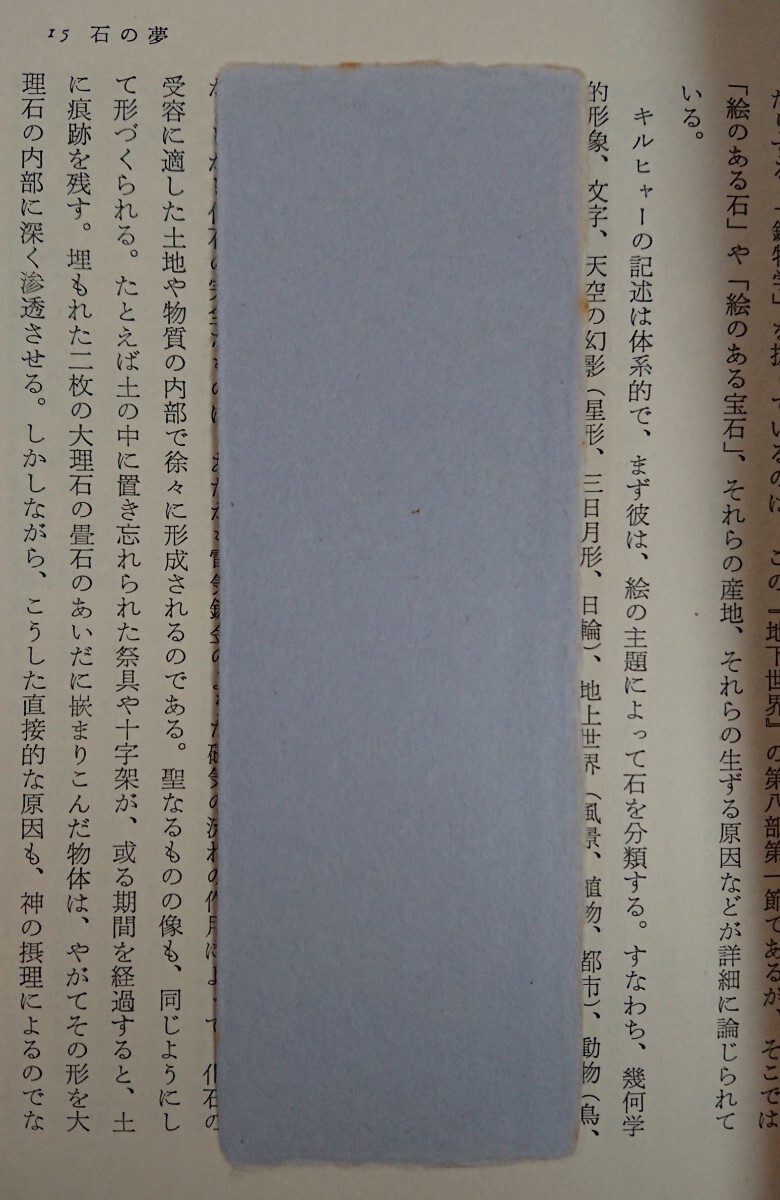 15 石の夢
「絵のある石」や「絵のある宝石」、それらの産地、それらの生ずる原因などが詳細に論じられて
いる。
キルヒャーの記述は体系的で、まず彼は、絵の主題によって石を分類する。すなわち、幾何学
的形象、文字、天空の幻影（星形、三日月形、日輪）、地上世界（風景、植物、都市）、動物（鳥、
受容に適した土地や物質の内部で徐々に形成されるのである。聖なるものの像も、同じようにし
て形づくられる。たとえば土の中に置き忘れられた祭具や十字架が、或る期間を経過すると、土
に痕跡を残す。埋もれた二枚の大理石の畳石のあいだに嵌まりこんだ物体は、やがてその形を大
理石の内部に深く滲透させる。しかしながら、こうした直接的な原因も、神の摂理によるのでな